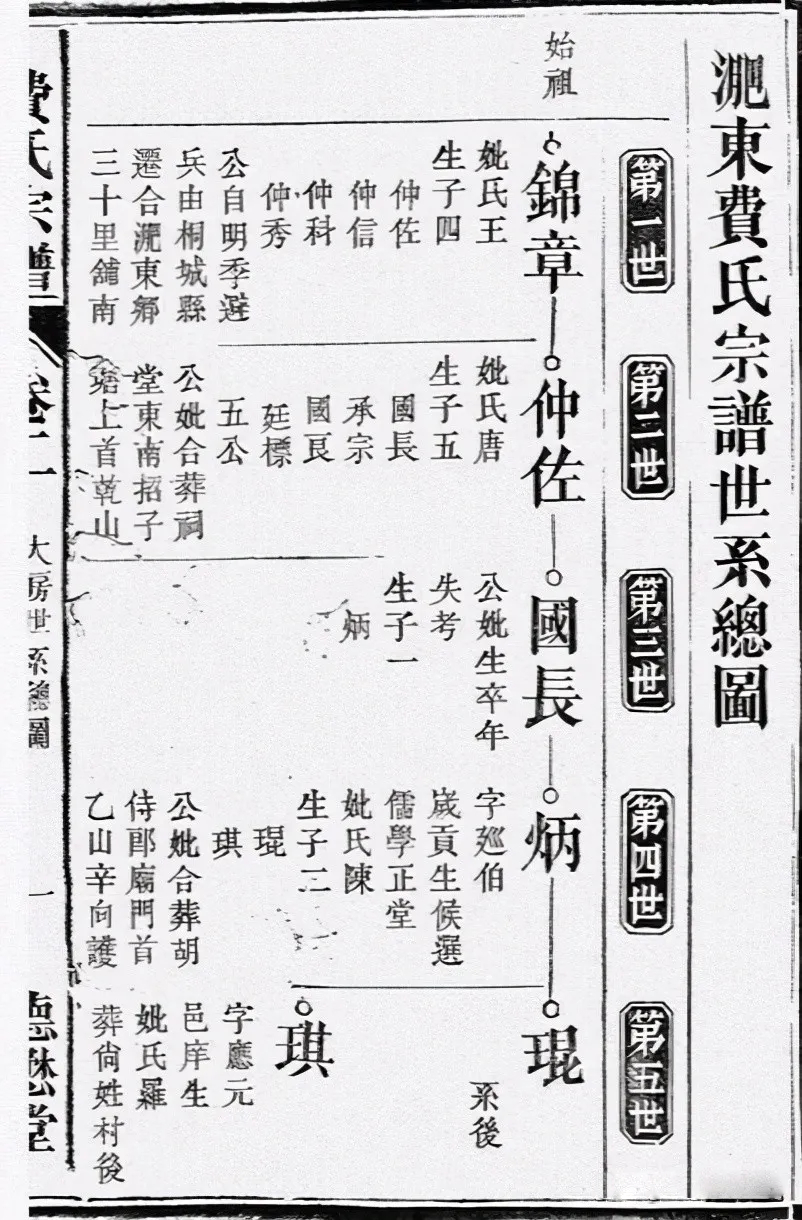 淝東費氏宗譜世系總圖
第一世
第二世
第三世
第四世
第五世
始祖
錦章
妣氏王
生子四
仲佐
仲信
仲科
仲秀
公自明季避
兵由桐城縣
遷合淝東鄉
三十里舖南
仲佐
妣氏唐
生子五
國長
承宗
國良
廷標
五公
公妣合葬祠
堂東南招子
塘上首乾山
國長
公妣生卒年
失考
生子一
炳
炳
字廵伯
歲貢生候選
儒學正堂
妣氏陳
生子二
琨
琪
公妣合葬胡
侍郎廟門首
乙山辛向護
琨
系後
琪
字應元
邑庠生
妣氏羅
葬尙姓村後
費氏宗譜
卷二
大房世系總圖
一
德懋堂